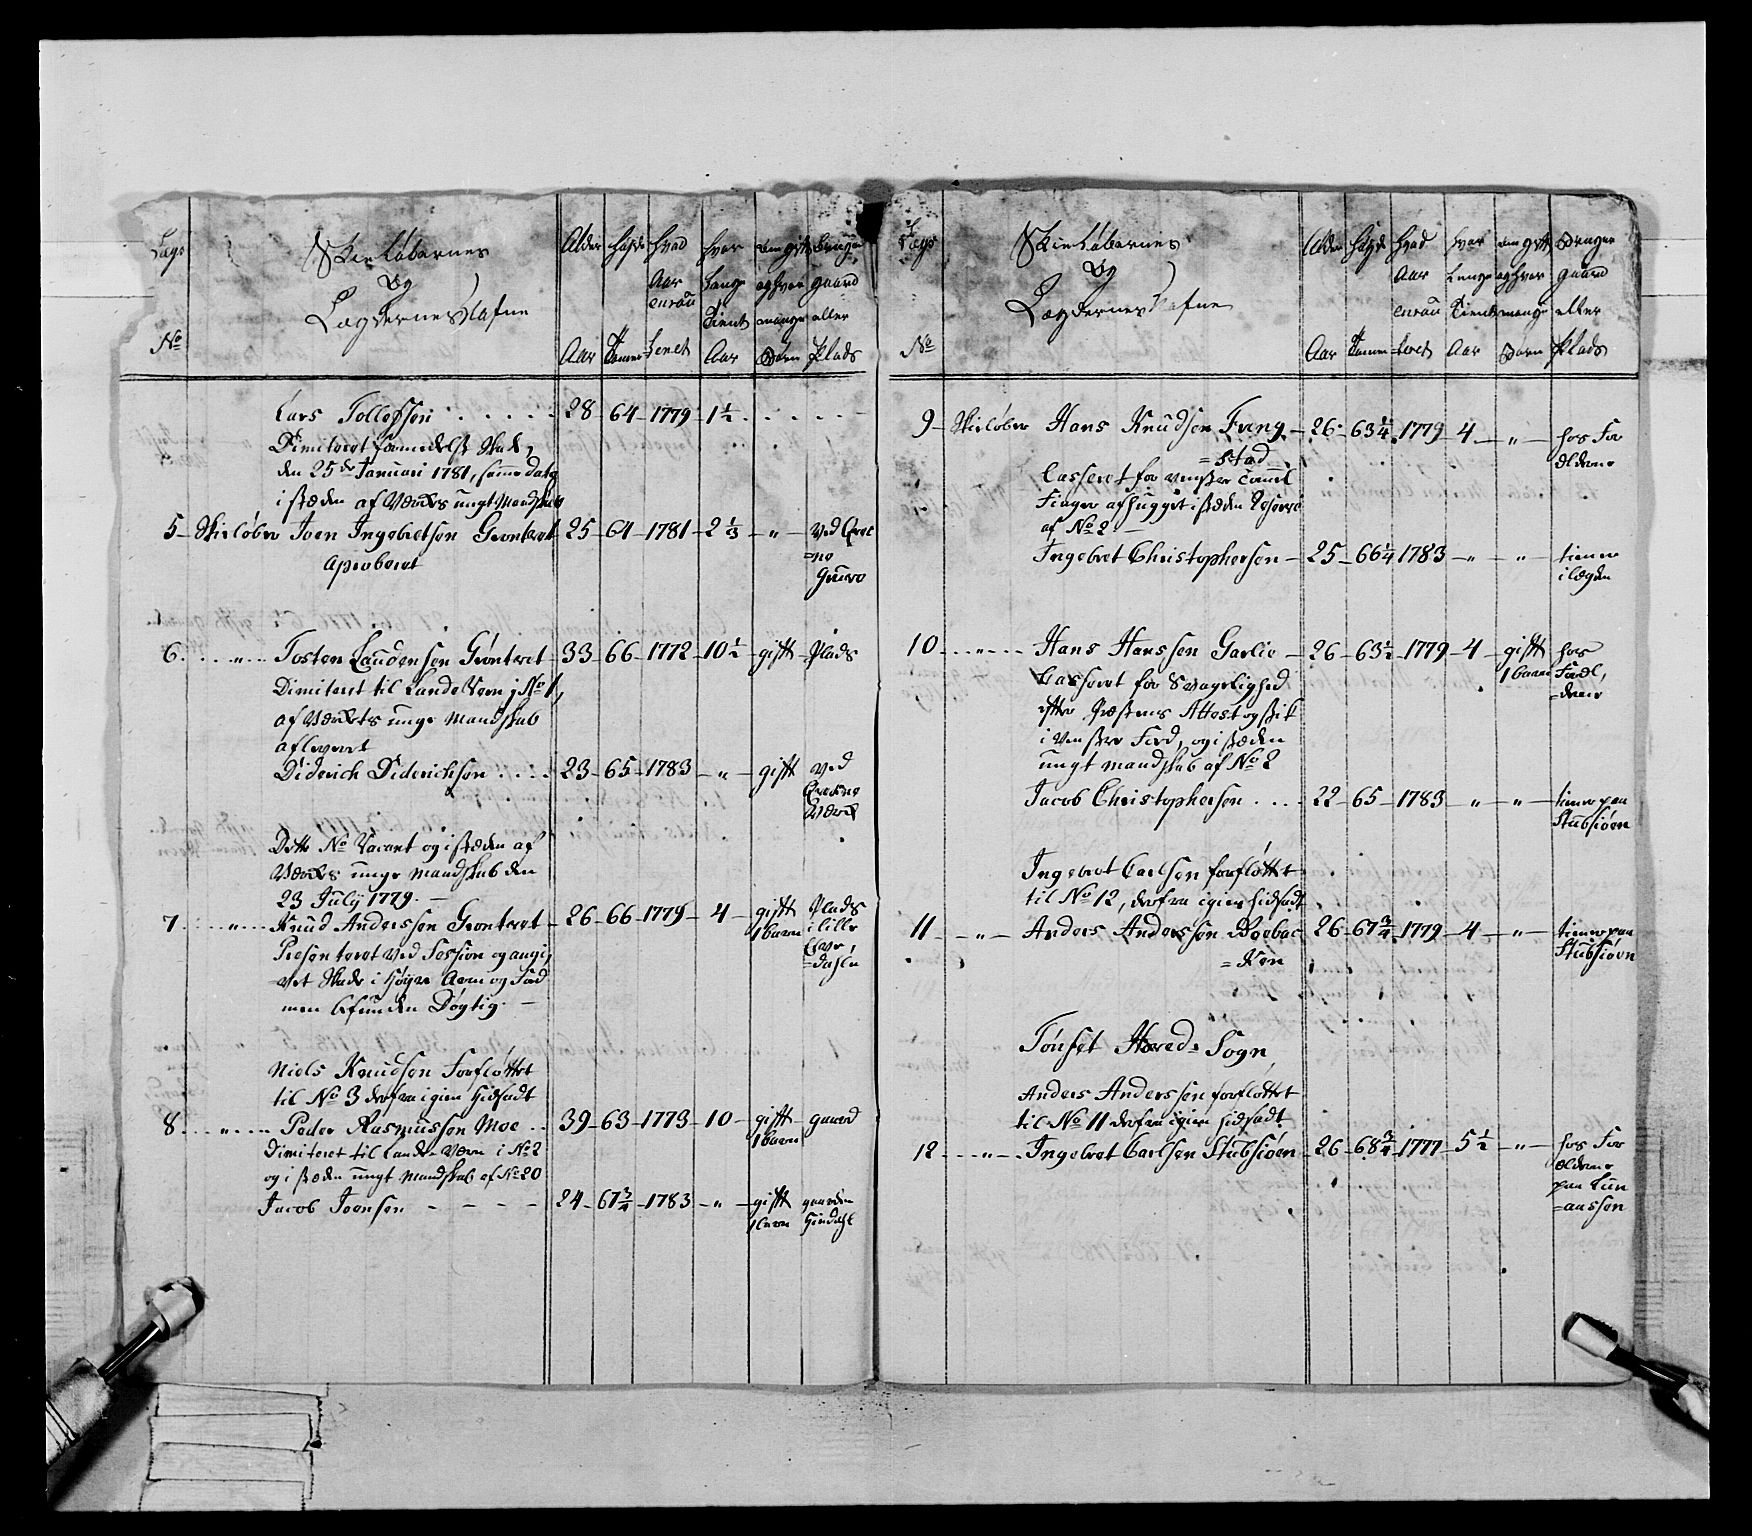 Lægs
No
Skieløbernes
og
Lægdernes Nafne
Alder
Aar
Høyde
Tommer
Hvad
Aar
enrou
leret
Hvor
Længe
Tient
Aar
Om gift
og hvor
mange
Børn
Bruger
gaard
eller
Plads
Lars Tollefsen . . . . . 28 64 1779 1½ . . . . .
Dimiteret formedelst Skade,
den 25de Januari 1781, samme dato
i stæden af Værkets ungt Mandskab
5 Skieløber Joen Ingebretsen Gronteret 25 64 1781 2⅓ " ved Qvek
=ne
Gruve
Aproberet
6 . . . " . . . Tosten Laudensen Gronteret 33 66 1772 10½ gift Plads
Dimiteret til Lande Vern j No 1,
af Værkets unge Mandskab
afleveret
Diderich Diderichsen . . . . 23 65 1783 " gift ved
Qvekne
Værck
Dette No Vacant og i stæden af
Værkets unge Mandskab den
23 July 1779. —
7 . . . " . . . Knud Anderssen Gronteret 26 66 1779 4 gift
1 barn
Plads
i lille
Elve,
=dahlen
Præsenteret ved Session og angi,
vet Skade i Høyre Arm og Food
men befunden Døgtig. —
Niels Knudsen Forfløttet
til No 3 derfra igien Hidsadt
8 . . . " . . . Peder Rasmussen Moe . . 39 63 1773 10 gift
1 barn
gaard
Dimiteret til Lande Værn i No 2
og i stæden ungt Mandskab af No 20
Jacob Joensen - - - - 24 67¾ 1783 " gift
1 barn
gaarden
Lægs
No
Skieløbernes
og
Lægdernes Nafne
Alder
Aar
Høyde
Tomme
Hvad
Aar
enrou
leret
Hvor
Lenge
Tient
Aar
Om gift
og hvor
mange
Børn
Bruger
gaard
eller
Plads
9 Skieløber Hans Knudsen Fring 26 63¼ 1779 4 " hos For
ældrene
=stad
Casseret for venstre Haand
Finger afhugget i stæden Reserve
af No 2
Ingebret Christophersen 25 66¼ 1783 " " tiener
i lægden
10 . . . " . . . Hans Hanssen Garlie 26 63½ 1779 4 gift
1 barn
hos
Foræl,
=drene
Casseret for Svagelighed
efter Præstens Attest og stik
i venstre Food, og i stæden
ungt mandskab af No 2
Jacob Christophersen . . . . 22 65 1783 " " tiener paa
Stubsiøen
Ingebret Carlsen forfløttet
til No 12, derfra igien hidsadt
11 — " — Anders Anderssen Boebac 26 67¾ 1779 4 " tiener paa
Stubsiøen
=Ken
Tønset Hoved-Sogn
Anders Anderssen forfløttet
til No 11 derfra igien hidsadt
12 — " — Ingebret Carlsen Stubsiøen 26 68¾ 1777 5½ " hos For
ældrene
paa Tun
=aassen